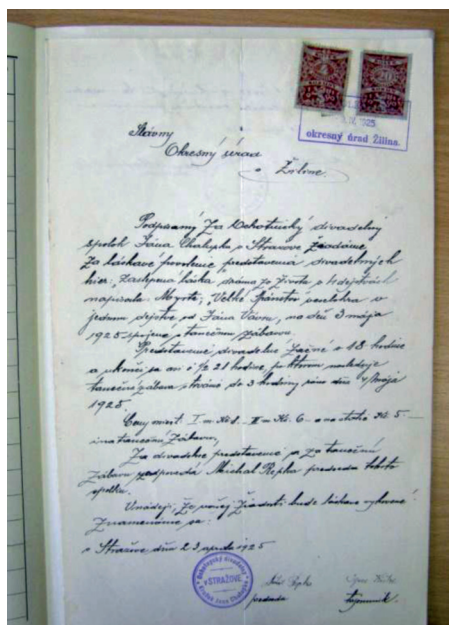 4
20
IV. 1925
okresný úrad Žilina.
Slávny
Okresný úrad
v Žiline.
Podpísaný za Ochotnícky divadelný
spolok Jána Chalupku v Stražove žiadame
za láskavé povolenie predstavenia divadelných
hier: láska dráma zo života v 4 dejstvách
napísala Veľké veselohra v
jednom dejstve od Jána Vávru, na deň 3 mája
1925 spojené s tanečnou zábavou.
Predstavenie divadelné začne o 18 hodine
a ukončí sa o ½ 21 hodine, po ktorom nasleduje
tanečná zábava do 3 hodiny rána dňa 4 mája
1925.
Ceny miest: I = Kč 8.- II = Kč. 6.- a na státie Kč. 5.-
i na tanečnú zábavu.
Za divadelné predstavenie a za tanečnú
zábavu zodpovedá Michal Repka predseda tohoto
spolku.
že našej žiadosti bude láskave vyhovené
Znamenáme sa:
v Stražove dňa 23 apríla 1925
Ochotnícky divadelný
V STRAŽOVE
Repka
predseda
tajomník